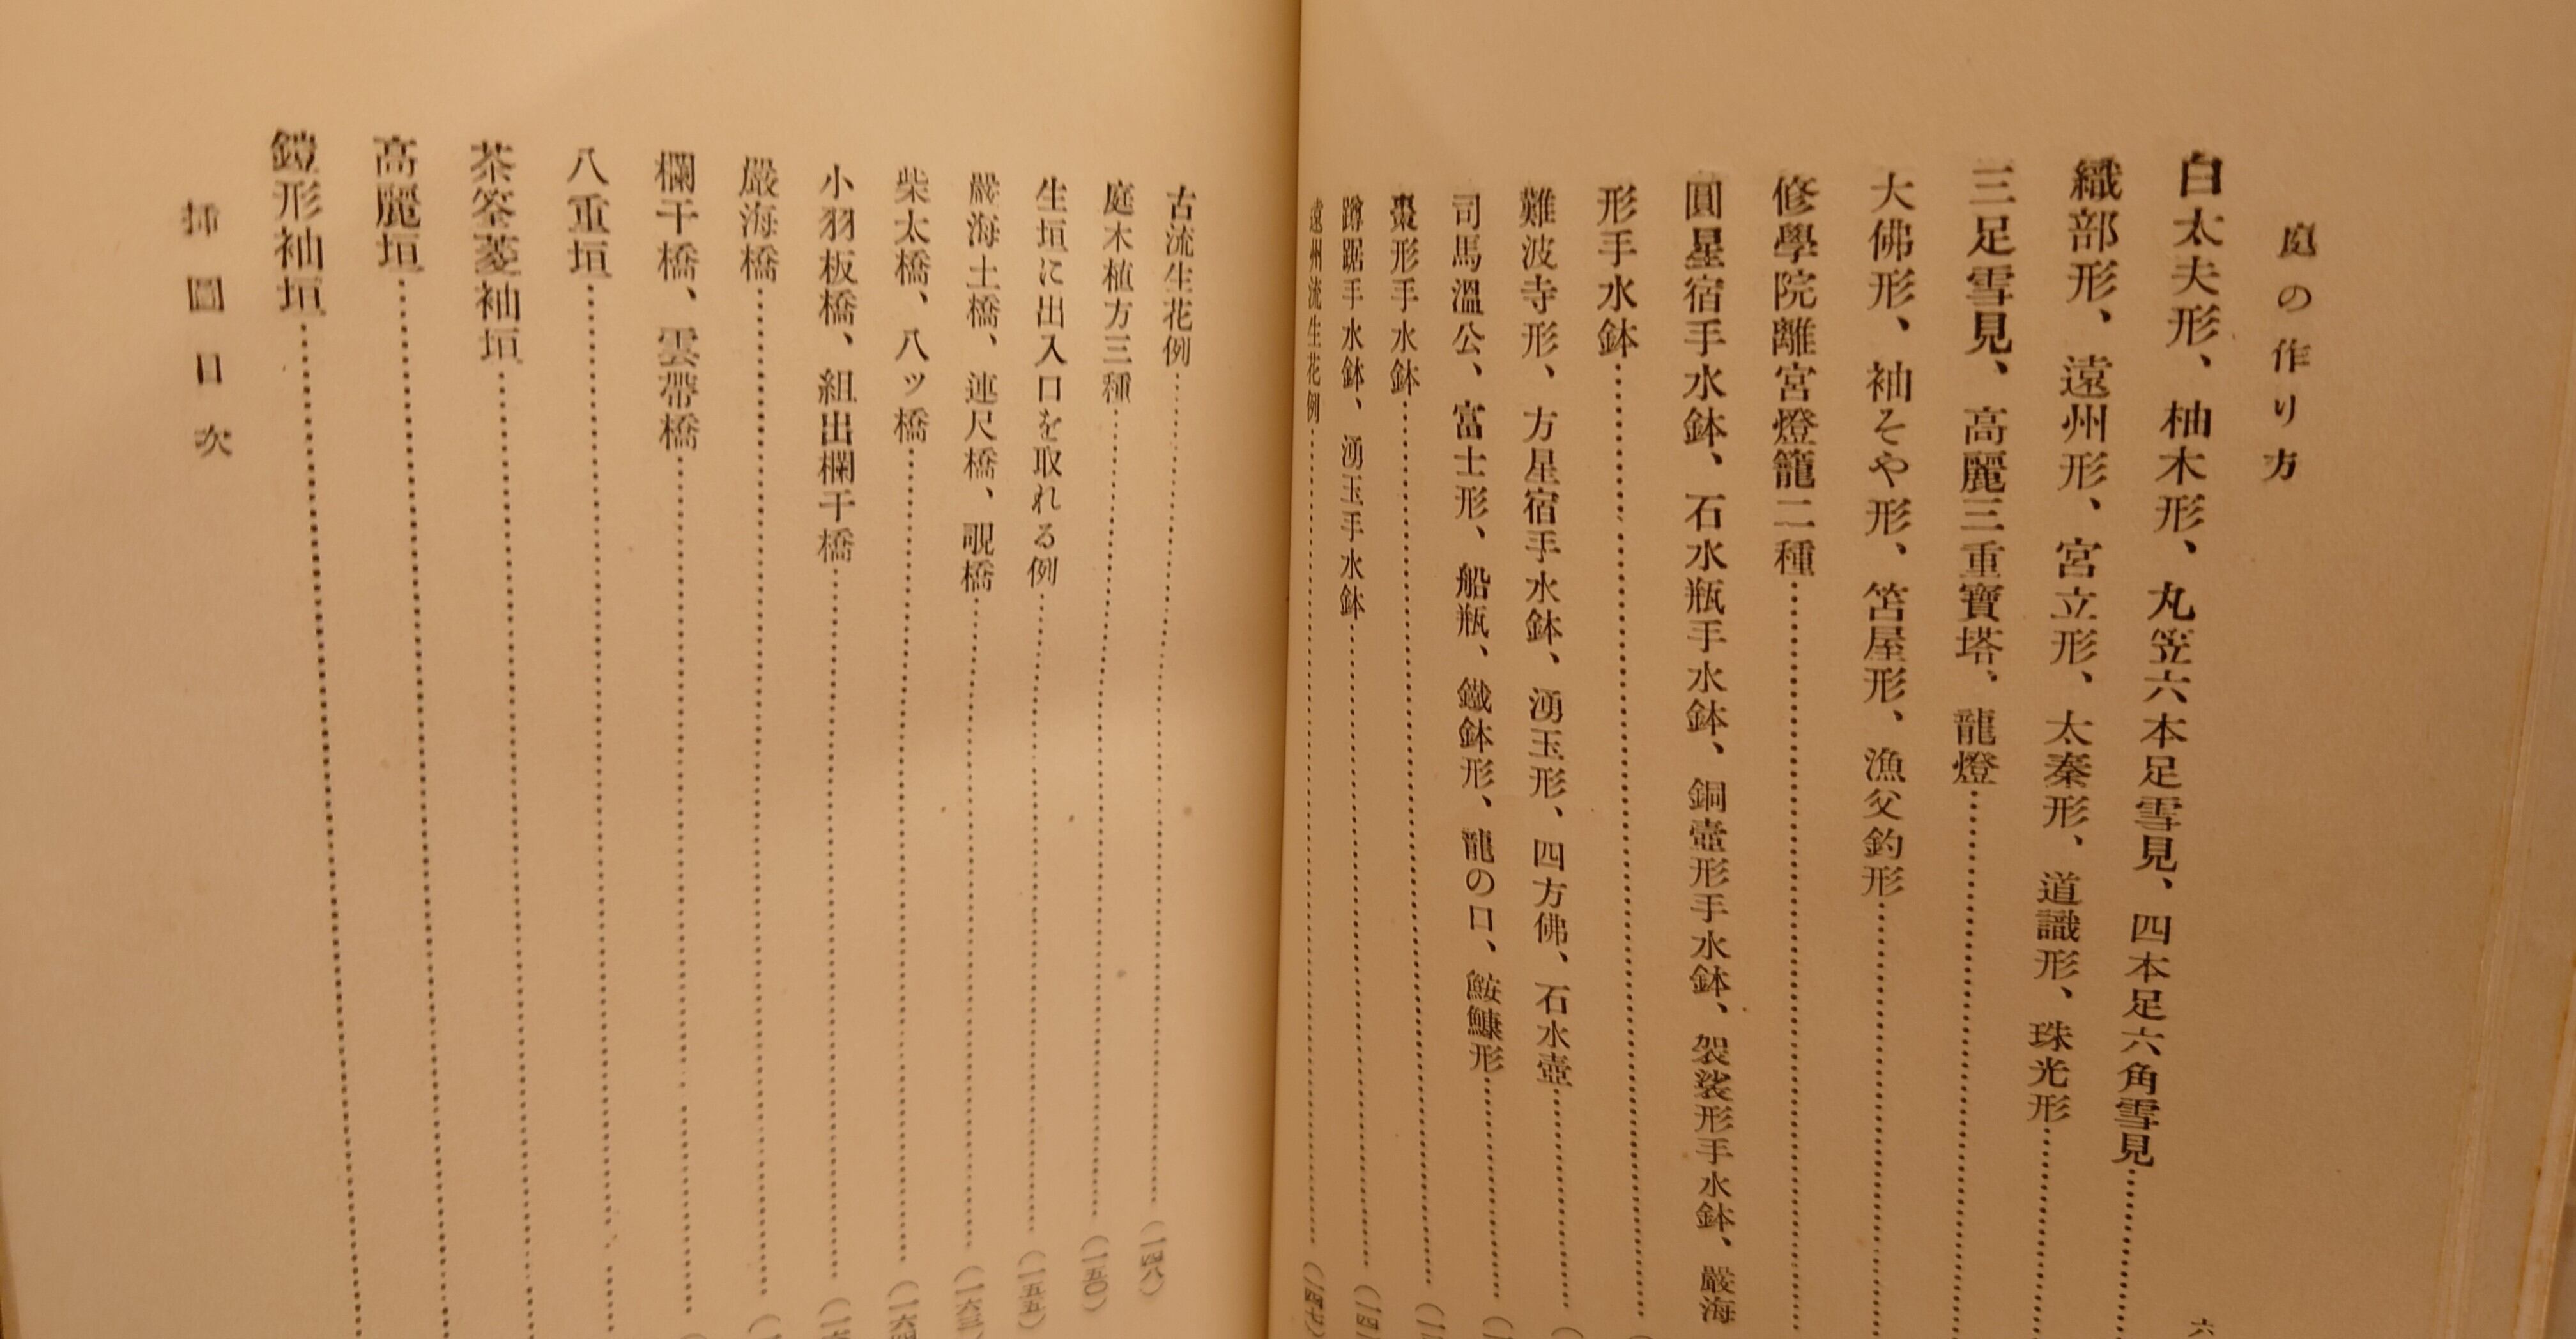 庭の作り方
白太夫形、柚木形、丸笠六本足雪見、四本足六角雪見
織部形、遠州形、宮立形、太秦形、道識形、珠光形
三足雪見、高麗三重寶塔、龍燈
大佛形、袖そや形、笘屋形、漁父釣形
修學院離宮燈籠二種
圓星宿手水鉢、石水瓶手水鉢、銅壺形手水鉢、袈裟形手水鉢、嚴海
形手水鉢
難波寺形、方星宿手水鉢、湧玉形、四方佛、石水壺
司馬溫公、富士形、船瓶、鐵鉢形、龍の口、鮟鱇形
棗形手水鉢
蹲踞手水鉢、湧玉手水鉢
遠州流生花例(一四七)
六
古流生花例(一四八)
庭木植方三種(一五〇)
生垣に出入口を取れる例(一五五)
嚴海土橋、連尺橋、覗橋(一六三)
柴太橋、八ッ橋
小羽板橋、組出欄干橋
嚴海橋
欄干橋、雲帶橋
八重垣
茶筌菱袖垣
高麗垣
鎧形袖垣
挿圖目次